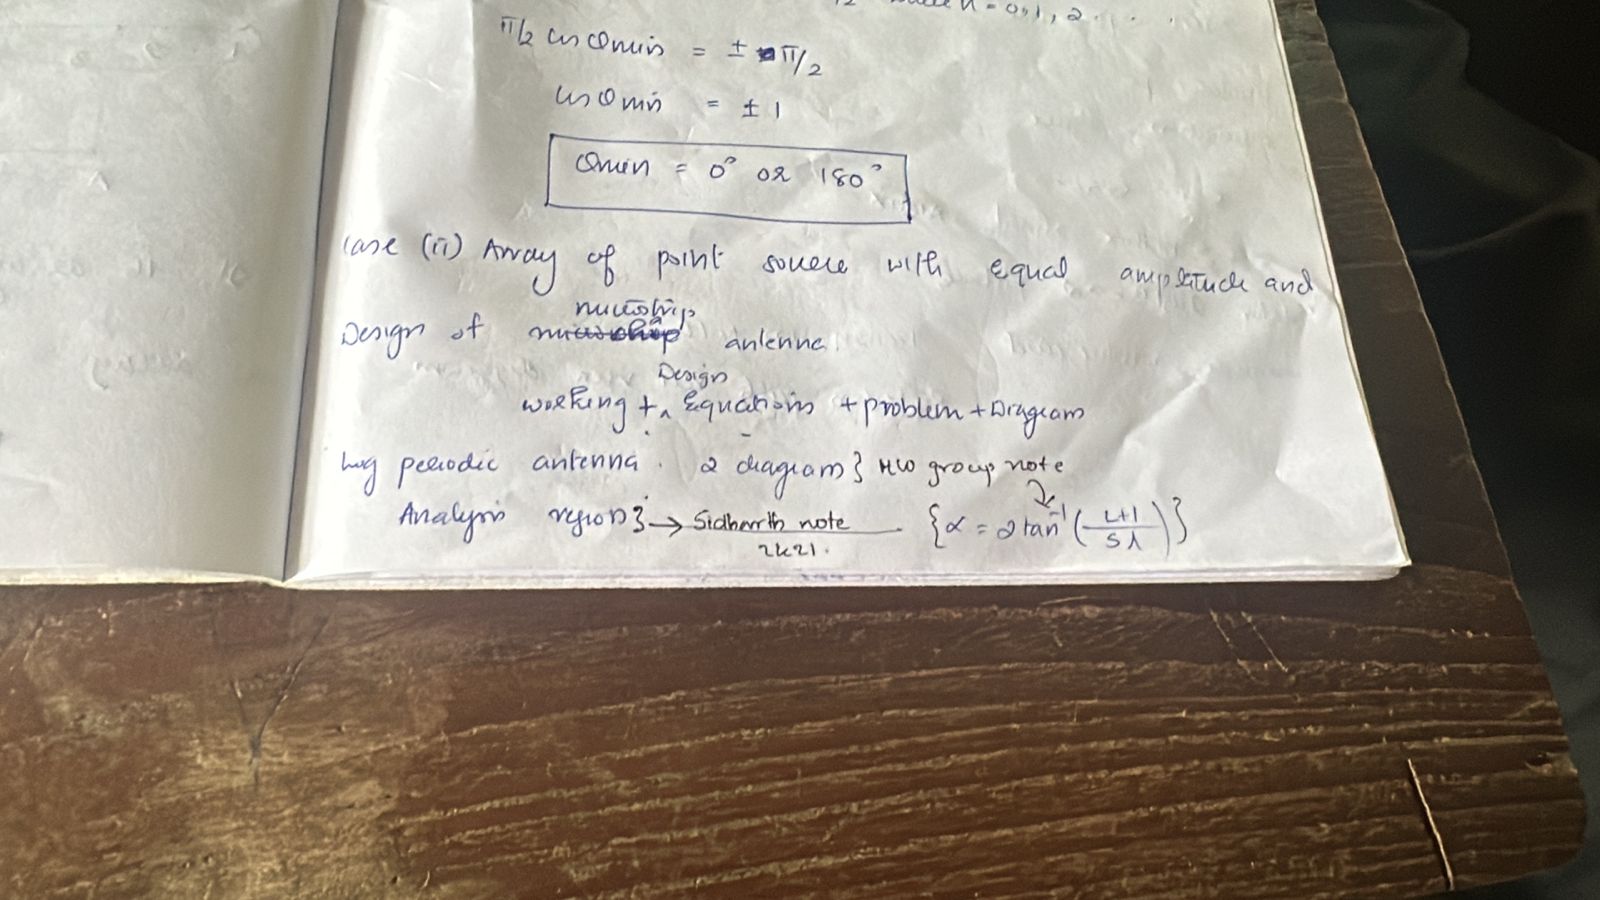 n = 0,1,2 . . .
π/2 cos θmin = ± π/2
cos θmin = ± 1
θmin = 0° or 180°
case (ii) Array of point source with equal amplitude and
Design of microstrip antenna.
working + Design Equations + problem + Diagram
Log periodic antenna. 2 diagram} HW group note
Analysis region} → Sidharrth note {α = 2tan⁻¹(L+1/Sλ)}
2k21.